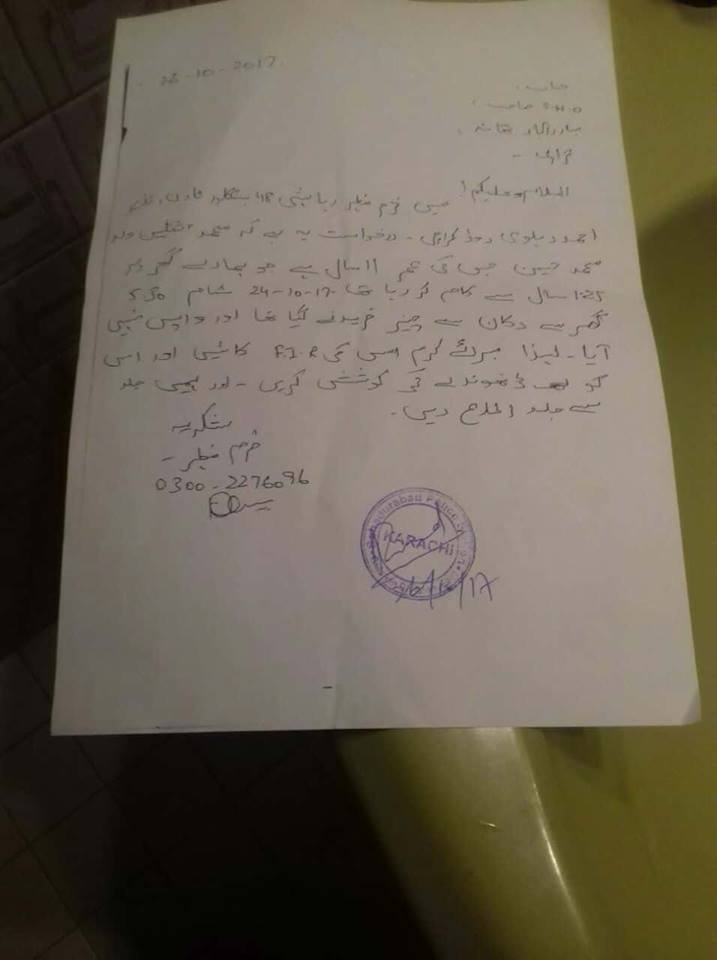 26-10-2017.
جناب،
S.H.O صاحب،
بہادرآباد تھانہ،
کراچی -
السلام وعلیکم!
میں خرم منظر رہائشی 48 بنگلور ٹاؤن،
احمد دہلوی روڈ کراچی - درخواست یہ ہے کہ محمد ولد
محمد حسین جس کی عمر 11 سال ہے جو ہمارے گھر پر
1.25 سال سے کام کر رہا تھا 24-10-17 شام 5:50
گھر سے دکان سے چیز خریدنے گیا تھا اور واپس نہیں
آیا - لہذا برائے کرم اس کی F.I.R کاٹیں اور اس
کو ڈھونڈنے کی کوشش کریں - اور ہمیں جلد
سے جلد اطلاع دیں -
شکریہ
خرم منظر -
0300-2276096
Bahadurabad Police Station
KARACHI
26/10/17